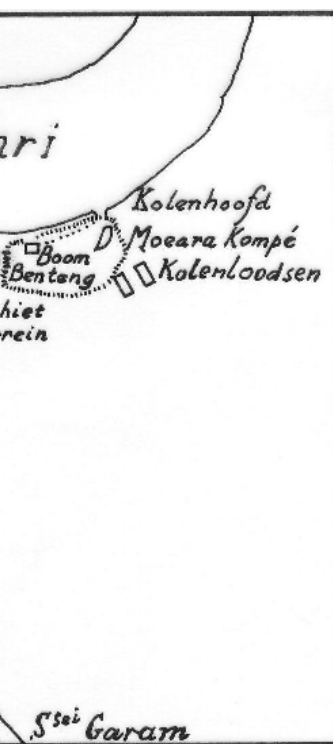 ari
Kolenhoofd
Moeara Kompé
Boom
Benteng
Kolenloodsen
hiet
rein
Sˢᵉⁱ Garam